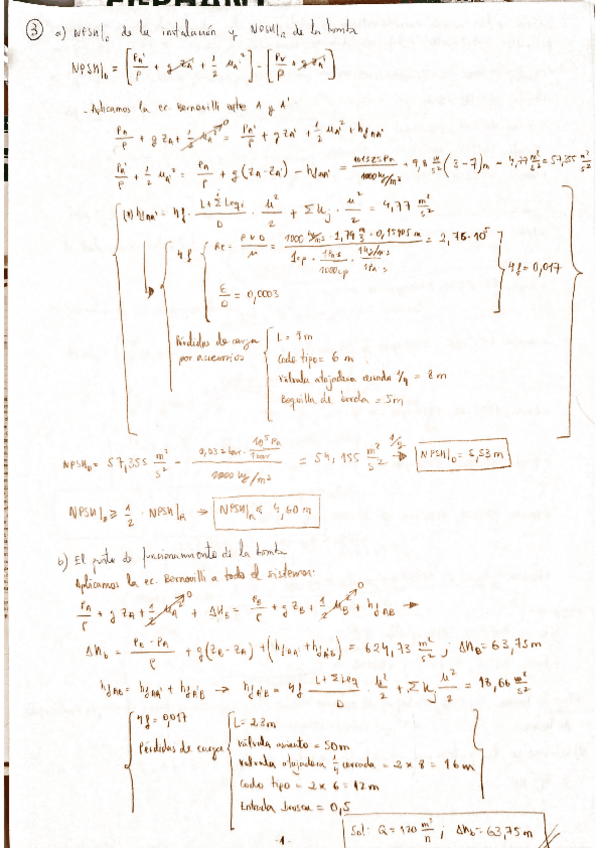 ELEPHANT
③ a) NPSH|D de la instalación y NPSH|R de la bomba
NPSH|D = [PA'/ρ + g zA' + 1/2 uA'²] - [Pv/ρ + g zA']
- Aplicamos la ec. Bernouilli entre A y A'
PA/ρ + g zA + 1/2 uA² = PA'/ρ + g zA' + 1/2 uA'² + hfAA'
PA'/ρ + 1/2 uA'² = PA/ρ + g(zA-zA') - hfAA' = 101325 Pa/1000 kg/m³ + 9,8 m/s² (3-7)m - 4,77 m²/s² = 57,355 m²/s²
(*) hfAA' = 4f · L+ΣLeqi/D · u²/2 + ΣKj · u²/2 = 4,77 m²/s²
4f
Re = ρvD/μ = = 2,76·10⁵
ε/D = 0,0003
4f = 0,017
Pérdidas de carga por accesorios
L = 7m
Codo tipo = 6 m
Válvula atajadera cerrada 1/4 = 8m
Boquilla de borda = 5m
NPSH|D = 57,355 m²/s² - 0,032 bar · 10⁵Pa/1bar / 1000 kg/m³ = 54,155 m²/s² → NPSH|D = 5,53m
NPSH|D ≥ 1/2 · NPSH|R → NPSH|R ≤ 4,60 m
b) El punto de funcionamiento de la bomba
Aplicamos la ec. Bernouilli a todo el sistema:
PA/ρ + g zA + 1/2 uA² + Δhb = PB/ρ + g zB + 1/2 uB² + hfAB →
Δhb = PB - PA/ρ + g(zB-zA) + (hfAA' + hfA'B) = 624,73 m²/s² ; Δhb = 63,75m
hfAB = hfAA' + hfA'B → hfA'B = 4f L+ΣLeq/D · u²/2 + ΣKj u²/2 = 18,66 m²/s²
4f = 0,017
Pérdidas de carga
L = 23m
Válvula asiento = 50m
Válvula atajadera 1/4 cerrada = 2 x 8 = 16m
Codo tipo = 2 x 6 = 12m
Entrada brusca = 0,5
Sol: Q = 120 m³/h ; Δhb = 63,75m
-1-